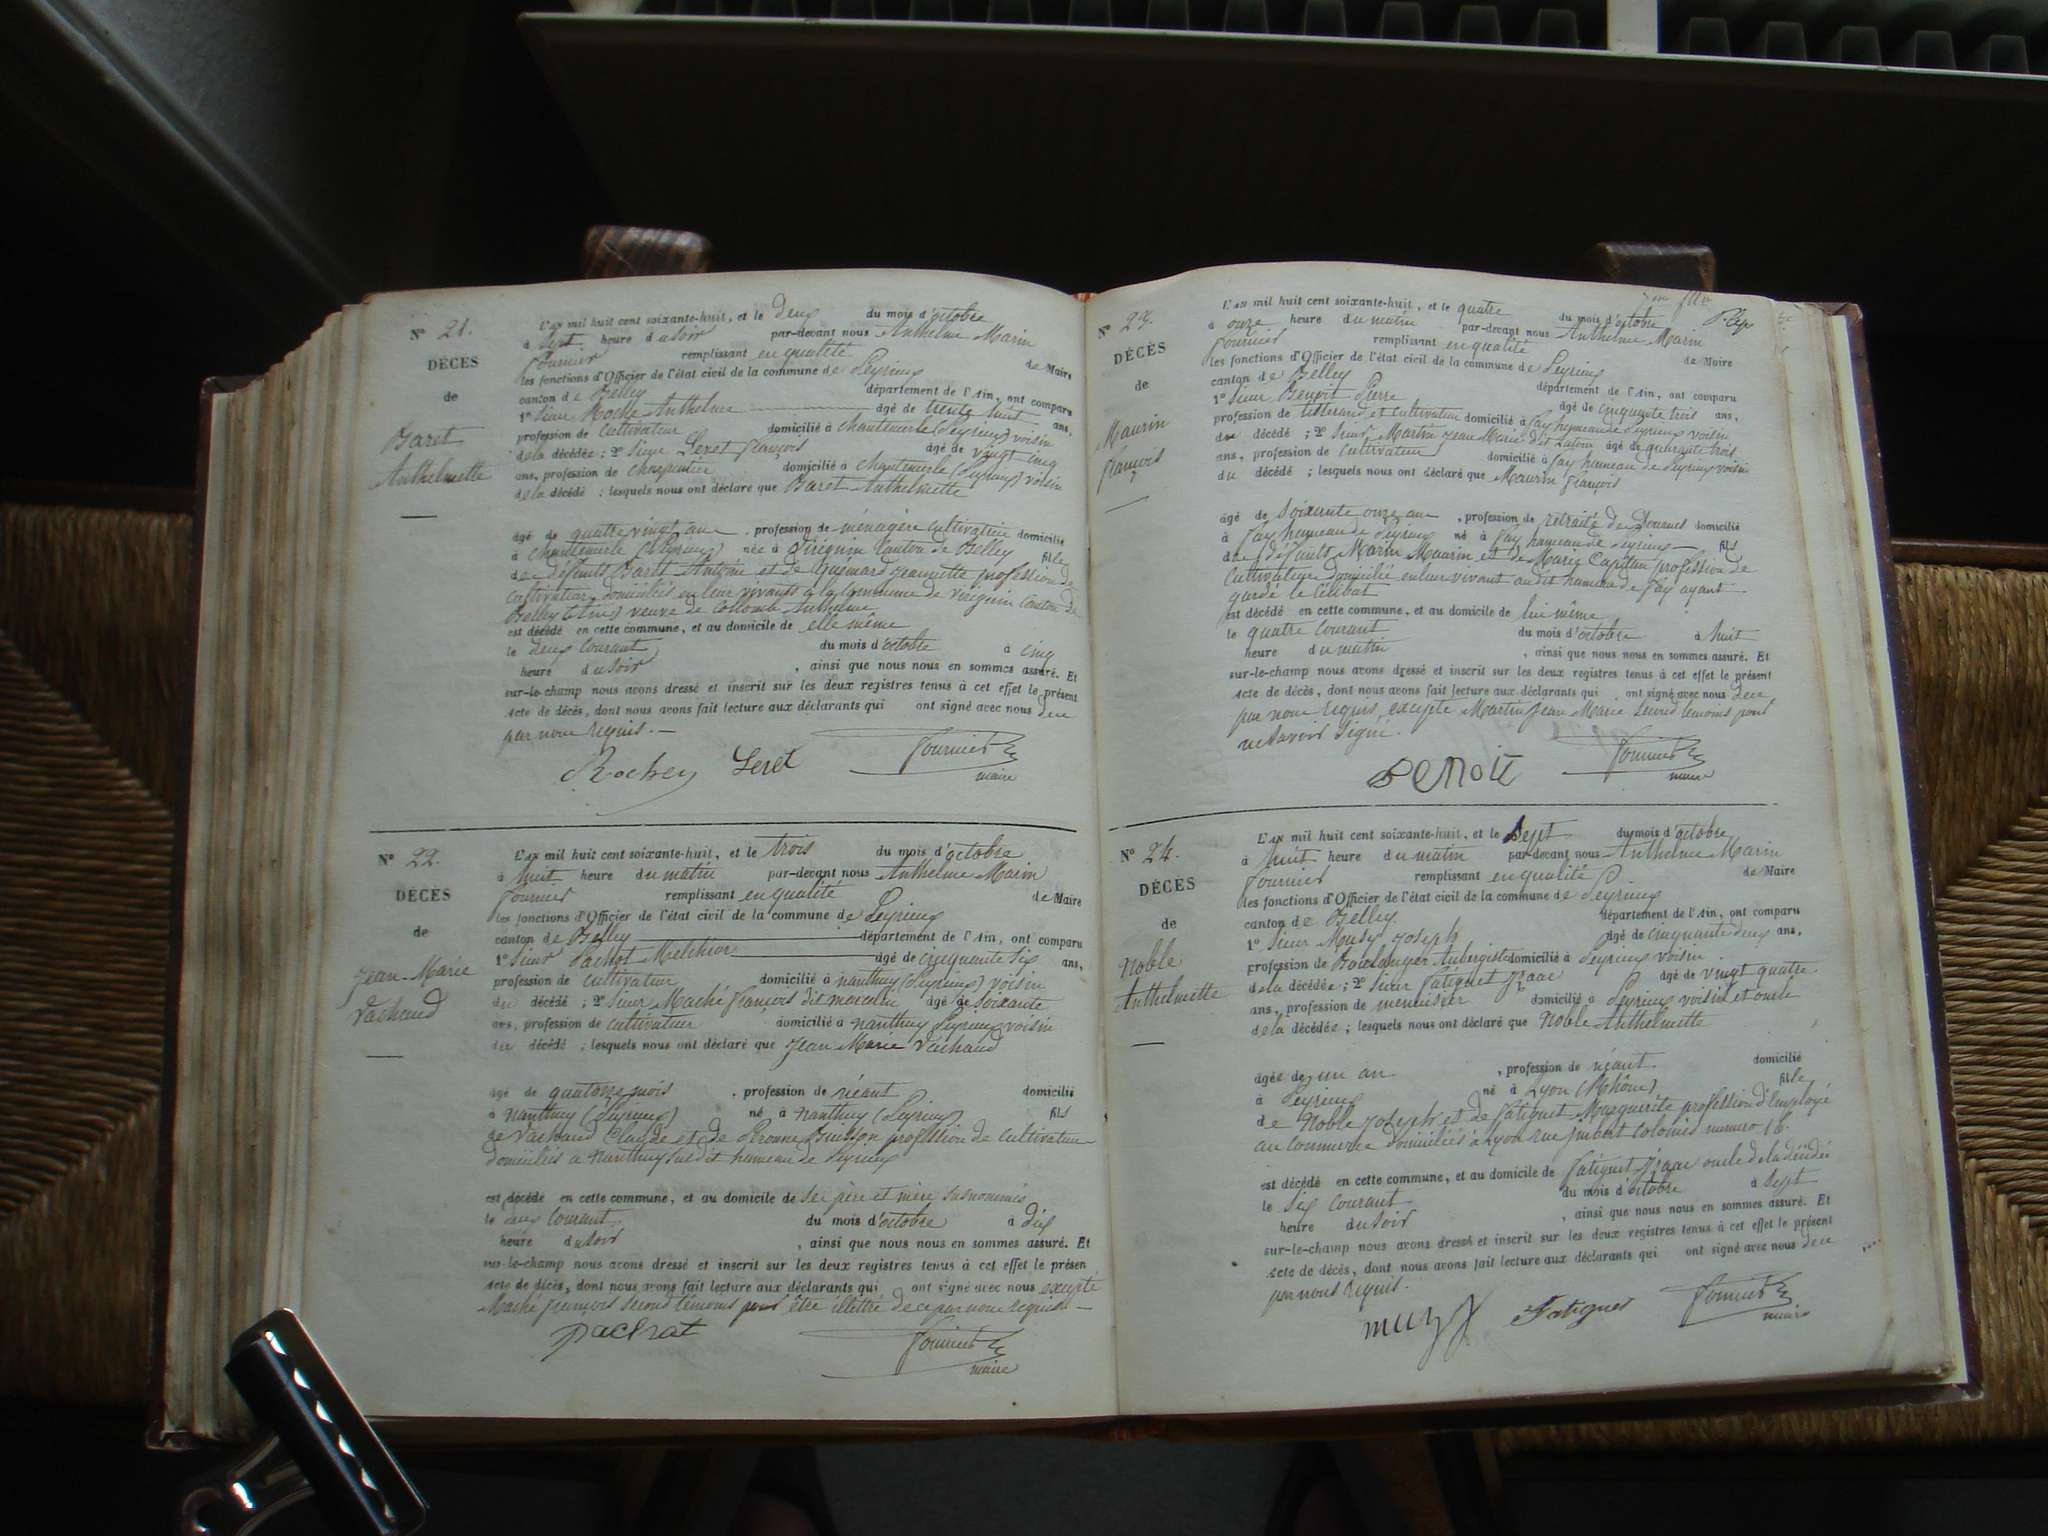 N° 21.
DÉCÈS
de
Baret
Anthelmette
L'AN mil huit cent soixante-huit, et le deux du mois d'octobre
à sept heure du soir par-devant nous Anthelme Marin
Fournier remplissant en qualité de Maire
les fonctions d'Officier de l'état civil de la commune de Peyrieu
canton de Belley département de l'Ain, ont comparu
1° Sieur Anthelme âgé de trente huit ans,
profession de cultivateur domicilié à chantemerle (Peyrieu) voisin
de la décédée; 2° Sieur Leret françois âgé de vingt cinq
ans, profession de charpentier domicilié à chantemerle (Peyrieu) voisin
de la décédé ; lesquels nous ont déclaré que Baret Anthelmette
âgé de quatre vingt ans , profession de ménagère cultivatrice domicilié
à chantemerle (Peyrieu) née à Virignin Canton de Belley fille
de défunts Baret Antoine et de Jeannette profession de
cultivateur domiciliés en leur vivants à la Commune de Virignin Canton de
Belley (Ain) veuve de Collomb Anthelme
est décédé en cette commune, et au domicile de elle même
le deux courant du mois d'octobre à cinq
heure du soir , ainsi que nous nous en sommes assuré. Et
sur-le-champ nous avons dressé et inscrit sur les deux registres tenus à cet effet le présent
acte de décès, dont nous avons fait lecture aux déclarants qui ont signé avec nous de ce
par nous requis.
Leret Fournier
maire
N° 22.
DÉCÈS
de
Jean-Marie
Vachaud
L'AN mil huit cent soixante-huit, et le trois du mois d'octobre
à huit heure du matin par-devant nous Anthelme Marin
Fournier remplissant en qualité de Maire
les fonctions d'Officier de l'état civil de la commune de Peyrieu
canton de Belley département de l'Ain, ont comparu
1° Sieur Pachot Melchior âgé de cinquante six ans,
profession de cultivateur domicilié à nanthuy (Peyrieu) voisin
du décédé ; 2° Sieur Maché françois dit âgé de soixante
ans, profession de cultivateur domicilié à nanthuy Peyrieu voisin
du décédé ; lesquels nous ont déclaré que Jean Marie Vachaud
âgé de quatorze mois , profession de néant domicilié
à nanthuy (Peyrieu) né à nanthuy (Peyrieu) fils
de Vachaud Claude et de Péronne Buisson profession de cultivateur
domiciliés a nanthuy susdit hameau de Peyrieu
est décédé en cette commune, et au domicile de ses père et mère susnommés
le deux courant du mois d'octobre à dix
heure du soir , ainsi que nous nous en sommes assuré. Et
sur-le-champ nous avons dressé et inscrit sur les deux registres tenus à cet effet le présen
acte de décès, dont nous avons fait lecture aux déclarants qui ont signé avec nous excepté
Maché françois second témoins pour être illettré de ce par nous requis
Fournier
maire
N° 23.
DÉCÈS
de
Maurin
françois
L'AN mil huit cent soixante-huit, et le quatre du mois d'octobre
à onze heure du matin par-devant nous Anthelme Marin
Fournier remplissant en qualité de Maire
les fonctions d'Officier de l'état civil de la commune de Peyrieu
canton de Belley département de l'Ain, ont comparu
1° Sieur Benoit Pierre âgé de cinquante trois ans,
profession de tisserand et cultivateur domicilié à fay hameau de Peyrieu voisin
du décédé ; 2° Sieur Martin Jean Marie dit âgé de quarante trois
ans, profession de cultivateur domicilié à fay hameau de Peyrieu voisin
du décédé ; lesquels nous ont déclaré que Maurin françois
âgé de soixante onze ans , profession de retraité des Douanes domicilié
à fay hameau de Peyrieu né à fay hameau de Peyrieu fils
des défunts Marin Maurin et de Marie Capitan profession de
cultivateur domicilié en leur vivant audit hameau de fay ayant
gardé le célibat
est décédé en cette commune, et au domicile de lui même
le quatre courant du mois d'octobre à huit
heure du matin , ainsi que nous nous en sommes assuré. Et
sur-le-champ nous avons dressé et inscrit sur les deux registres tenus à cet effet le présent
acte de décès, dont nous avons fait lecture aux déclarants qui ont signé avec nous de ce
par nous requis, excepté Martin Jean Marie second témoins pour
ne savoir signé.
Benoit Fournier
maire
N° 24.
DÉCÈS
de
Noble
Anthelmette
L'AN mil huit cent soixante-huit, et le sept du mois d'octobre
à huit heure du matin par-devant nous Anthelme Marin
Fournier remplissant en qualité de Maire
les fonctions d'Officier de l'état civil de la commune de Peyrieu
canton de Belley département de l'Ain, ont comparu
1° Sieur Musy Joseph âgé de cinquante deux ans,
profession de Boulanger Aubergiste domicilié à Peyrieu voisin
de la décédée ; 2° Sieur Fatiguet Isaac âgé de vingt quatre
ans, profession de menuisier domicilié à Peyrieu voisin et oncle
de la décédée ; lesquels nous ont déclaré que Noble Anthelmette
âgée de un an , profession de néant domicilié
à Peyrieu né à Lyon (Rhône) fille
de Noble Joseph et de Fatiguet Marguerite profession d'Employé
au commerce domiciliés à Lyon rue Imbert Colomés numero 16.
est décédé en cette commune, et au domicile de Fatiguet Isaac oncle de la décédée
le six courant du mois d'octobre à sept
heure du soir , ainsi que nous nous en sommes assuré. Et
sur-le-champ nous avons dressé et inscrit sur les deux registres tenus à cet effet le présent
acte de décès, dont nous avons fait lecture aux déclarants qui ont signé avec nous de ce
par nous requis.
Fatiguet Fournier
maire